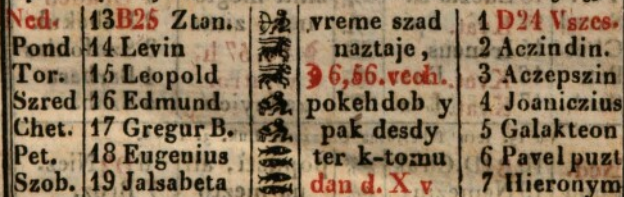 Ned. 13 B25 Ztan. vreme szad 1 D24 Vszes.
Pond 14 Levin naztaje, 2 Aczindin.
Tor. 15 Leopold 6,56. vech. 3 Aczepszin
Szred 16 Edmund pokehdob y 4 Joaniczius
Chet. 17 Gregur B. pak desdy 5 Galakteon
Pet. 18 Eugenius ter k-tomu 6 Pavel puzt
Szob. 19 Jalsabeta dan d. X v 7 Hieronym